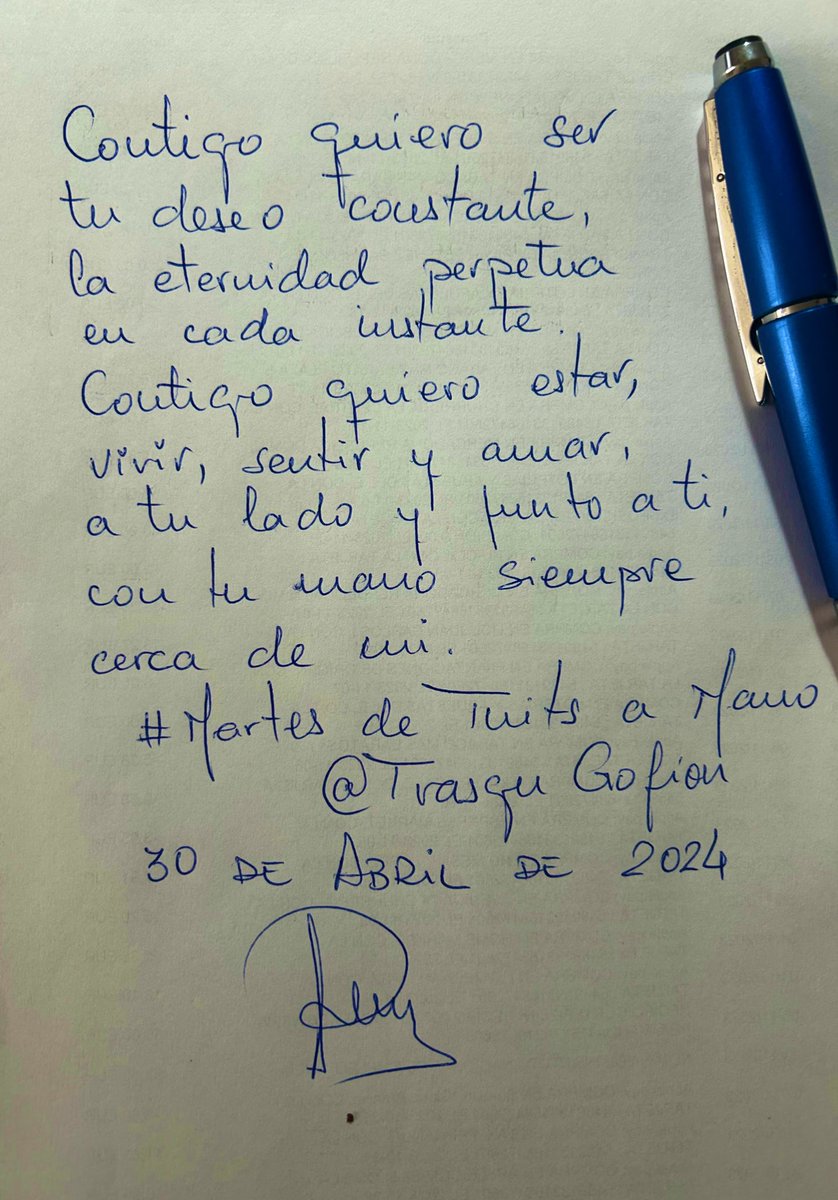 Contigo quiero ser
tu deseo constante,
la eternidad perpetua
en cada instante.
Contigo quiero estar,
vivir, sentir y amar,
a tu lado y junto a ti,
con tu mano siempre
cerca de mi.
#Martes de Tuits a Mano
@Trasgu Gofion
30 DE ABRIL DE 2024